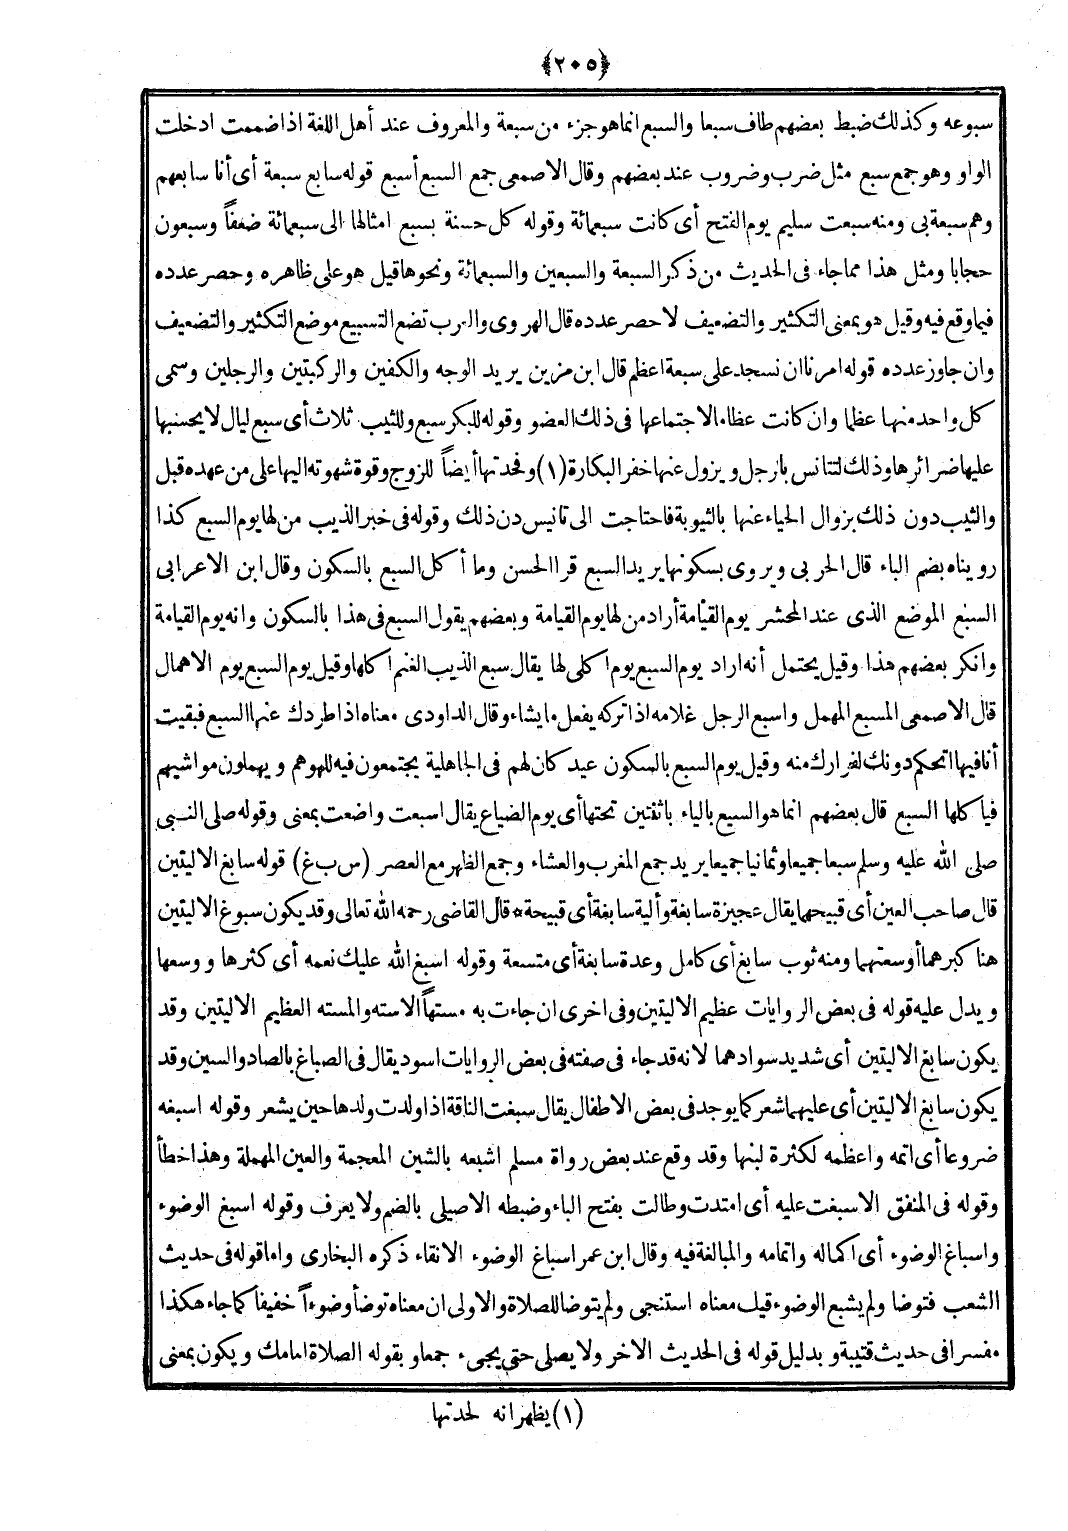 ﴿٢٠٥﴾
سبوعه وكذلك ضبط بعضهم طاف سبعا والسبع انما هو جزء من سبعة والمعروف عند أهل اللغة اذا ضممت ادخلت
الواو وهو جمع سبع مثل ضرب وضروب عند بعضهم وقال الاصمعى جمع السبع أسبع قوله سابع سبعة أى أنا سابعهم
وهم سبعة بى ومنه سبعت سليم يوم الفتح أى كانت سبعمائة وقوله كل حسنة بسبع امثالها الى سبعمائة ضعفاً وسبعون
حجابا ومثل هذا مما جاء فى الحديث من ذكر السبعة والسبعين والسبعمائة ونحوها قيل هو على ظاهره وحصر عدده
فيما وقع فيه وقيل هو بمعنى التكثير والتضعيف لا حصر عدده قال الهروى والعرب تضع التسبيع موضع التكثير والتضعيف
وان جاوز عدده قوله امرنا ان نسجد على سبعة اعظم قال ابن مزين يريد الوجه والكفين والركبتين والرجلين وسمى
كل واحد منها عظما وان كانت عظاما لاجتماعها فى ذلك العضو وقوله للبكر سبع وللثيب ثلاث أى سبع ليال لا يحسنبها
عليها ضرائرها وذلك لتتانس بالرجل ويزول عنها خفر البكارة (١) وفحدتها أيضاً للزوج وقوة شهوته اليها على من عهده قبل
والثيب دون ذلك بزوال الحياء عنها بالثيوبة فاحتاجت الى تانيس دن ذلك وقوله فى خبر الذيب من لها يوم السبع كذا
رويناه بضم الباء قال الحربى ويروى بسكونها يريد السبع قرا الحسن وما أكل السبع بالسكون وقال ابن الاعرابى
السبع الموضع الذى عند المحشر يوم القيامة أراد من لها يوم القيامة وبعضهم يقول السبع فى هذا بالسكون وانه يوم القيامة
وانكر بعضهم هذا وقيل يحتمل أنه اراد يوم السبع يوم اكلى لها يقال سبع الذيب الغنم اكلها وقيل يوم السبع يوم الاهمال
قال الاصمعى المسبع المهمل واسبع الرجل غلامه اذا تركه يفعل ما يشاء وقال الداودى معناه اذا طردك عنها السبع فبقيت
أنا فيها اتحكم دونك لفرارك منه وقيل يوم السبع بالسكون عيد كان لهم فى الجاهلية يجتمعون فيه للهوهم ويهملون مواشيهم
فيا كلها السبع قال بعضهم انما هو السيع بالياء باثنتين تحتها أى يوم الضياع يقال اسبعت واضعت بمعنى وقوله صلى النبى
صلى الله عليه وسلم سبعا جميعا وثمانيا جميعا يريد جمع المغرب والعشاء وجمع الظهر مع العصر (س ب غ) قوله سابغ الاليتين
قال صاحب العين أى قبيحهما يقال عجيزة سابغة وألية سابغة أى قبيحة * قال القاضى رحمه الله تعالى وقد يكون سبوغ الاليتين
هنا كبرهما أوسعتهما ومنه ثوب سابغ أى كامل وعدة سابغة أى متسعة وقوله اسبغ الله عليك نعمه أى كثرها ووسعها
ويدل عليه قوله فى بعض الروايات عظيم الاليتين وفى اخرى ان جاءت به مستهاً الاسته والمسته العظيم الاليتين وقد
يكون سابغ الاليتين أى شديد سوادهما لانه قد جاء فى صفته فى بعض الروايات اسود يقال فى الصباغ بالصاد والسين وقد
يكون سابغ الاليتين أى عليهما شعر كما يوجد فى بعض الاطفال يقال سبغت الناقة اذا ولدت ولدها حين يشعر وقوله اسبغه
ضروعا أى اتمه واعظمه لكثرة لبنها وقد وقع عند بعض رواة مسلم اشبعه بالشين المعجمة والعين المهملة وهذا خطأ
وقوله فى المنفق الا سبغت عليه أى امتدت وطالت بفتح الباء وضبطه الاصيلى بالضم ولا يعرف وقوله اسبغ الوضوء
واسباغ الوضوء أى اكماله واتمامه والمبالغة فيه وقال ابن عمر اسباغ الوضوء الانقاء ذكره البخارى واما قوله فى حديث
الشعب فتوضا ولم يشبع الوضوء قيل معناه استنجى ولم يتوضا للصلاة والاولى ان معناه توضأ وضوءاً خفيفا كما جاء هكذا
مفسرا فى حديث قتيبة وبدليل قوله فى الحديث الاخر ولا يصلى حتى يجىء جمعا وبقوله الصلاة امامك ويكون بمعنى
(١) يظهر انه لحدتها